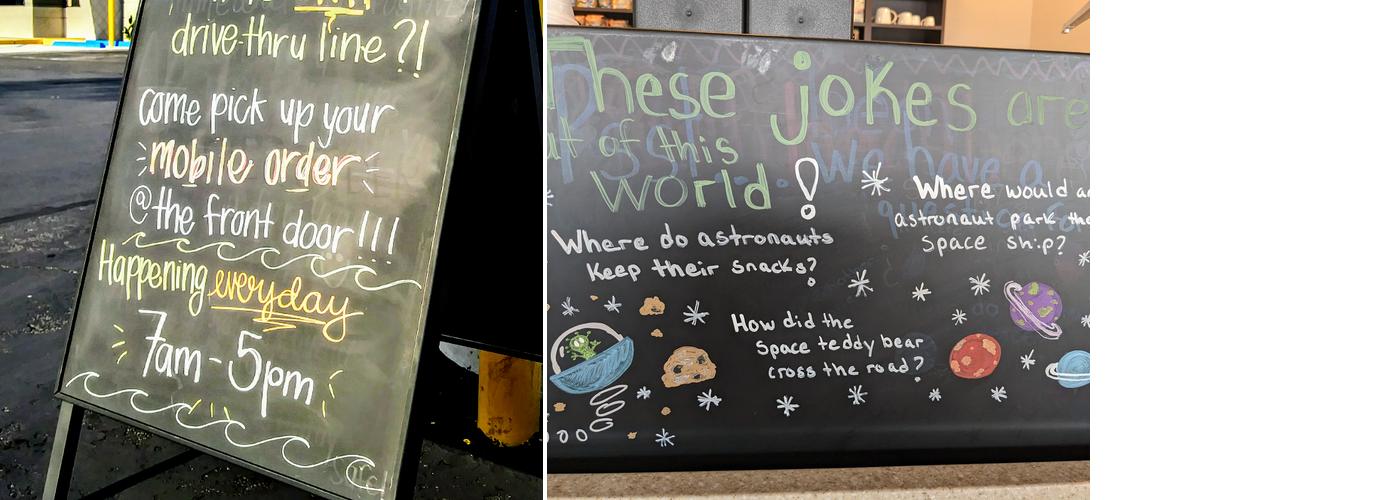 drive-thru line?!
come pick up your
mobile order
@the front door!!!
Happening everyday
7am-5pm
These jokes are
ut of this
world!
Where do astronauts
Keep their snacks?
Where would a
astronaut park the
space ship?
How did the
space teddy bear
cross the road?